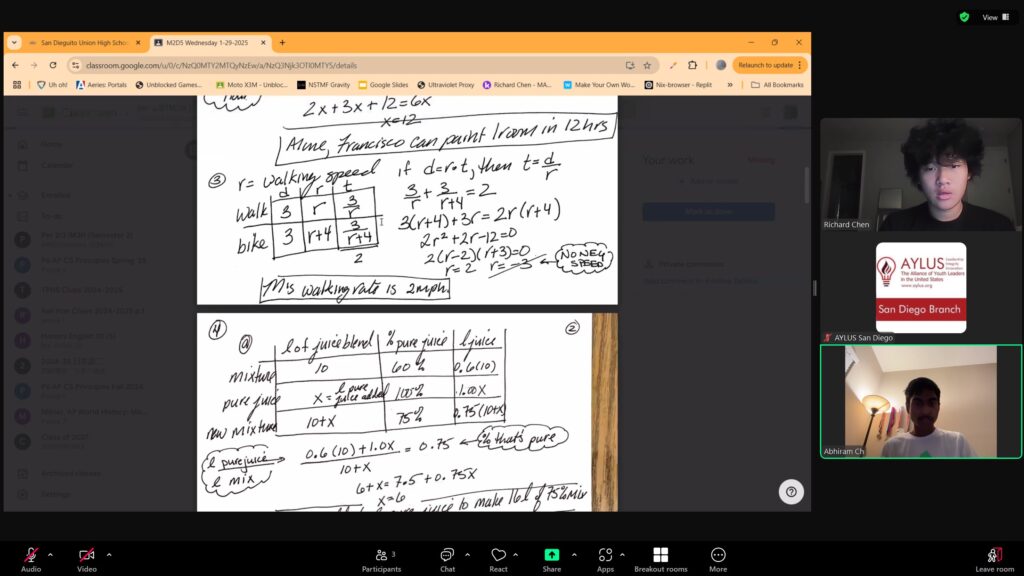 View
San Dieguito Union High Schoo
M2D5 Wednesday 1-29-2025
classroom.google.com/u/0/c/NzQ0MTY2MTQyNzEw/a/NzQ3Njk3OTI0MTY5/details
Relaunch to update
Uh oh!
Aeries: Portals
Unblocked Games...
Moto X3M - Unbloc...
NSTMF Gravity
Google Slides
Ultraviolet Proxy
Richard Chen - MA...
Make Your Own Wo...
Nix-browser - Replit
All Bookmarks
2x+3x+12=6x
x=12
Alone, Francisco can paint 1 room in 12 hrs
③ r= walking speed if d=r·t, then t=d/r
d r t
walk 3 r 3/r
bike 3 r+4 3/r+4
2
3/r + 3/r+4 = 2
3(r+4)+3r = 2r(r+4)
2r²+2r-12=0
2(r-2)(r+3)=0
r=2 r=-3
NO NEG SPEED
M's walking rate is 2mph
④ ⓐ ②
l of juice blend % pure juice l juice
mixture 10 60% 0.6(10)
pure juice x = l pure juice added 100% 1.00x
new mixture 10+x 75% 0.75(10+x)
l pure juice
l mix
0.6(10)+1.0x
10+x
= 0.75
% that's pure
6+x = 7.5+0.75x
x=6
juice to make 16l of 75% mix
Home
Calendar
Enrolled
To-do
Your work
Missing
Mark as done
Archived classes
Settings
Richard Chen
AYLUS
The Alliance of Youth Leaders
in the United States
www.aylus.org
San Diego Branch
AYLUS San Diego
Abhiram Ch
Audio
Video
3
Participants
Chat
React
Share
Apps
Breakout rooms
More
Leave room